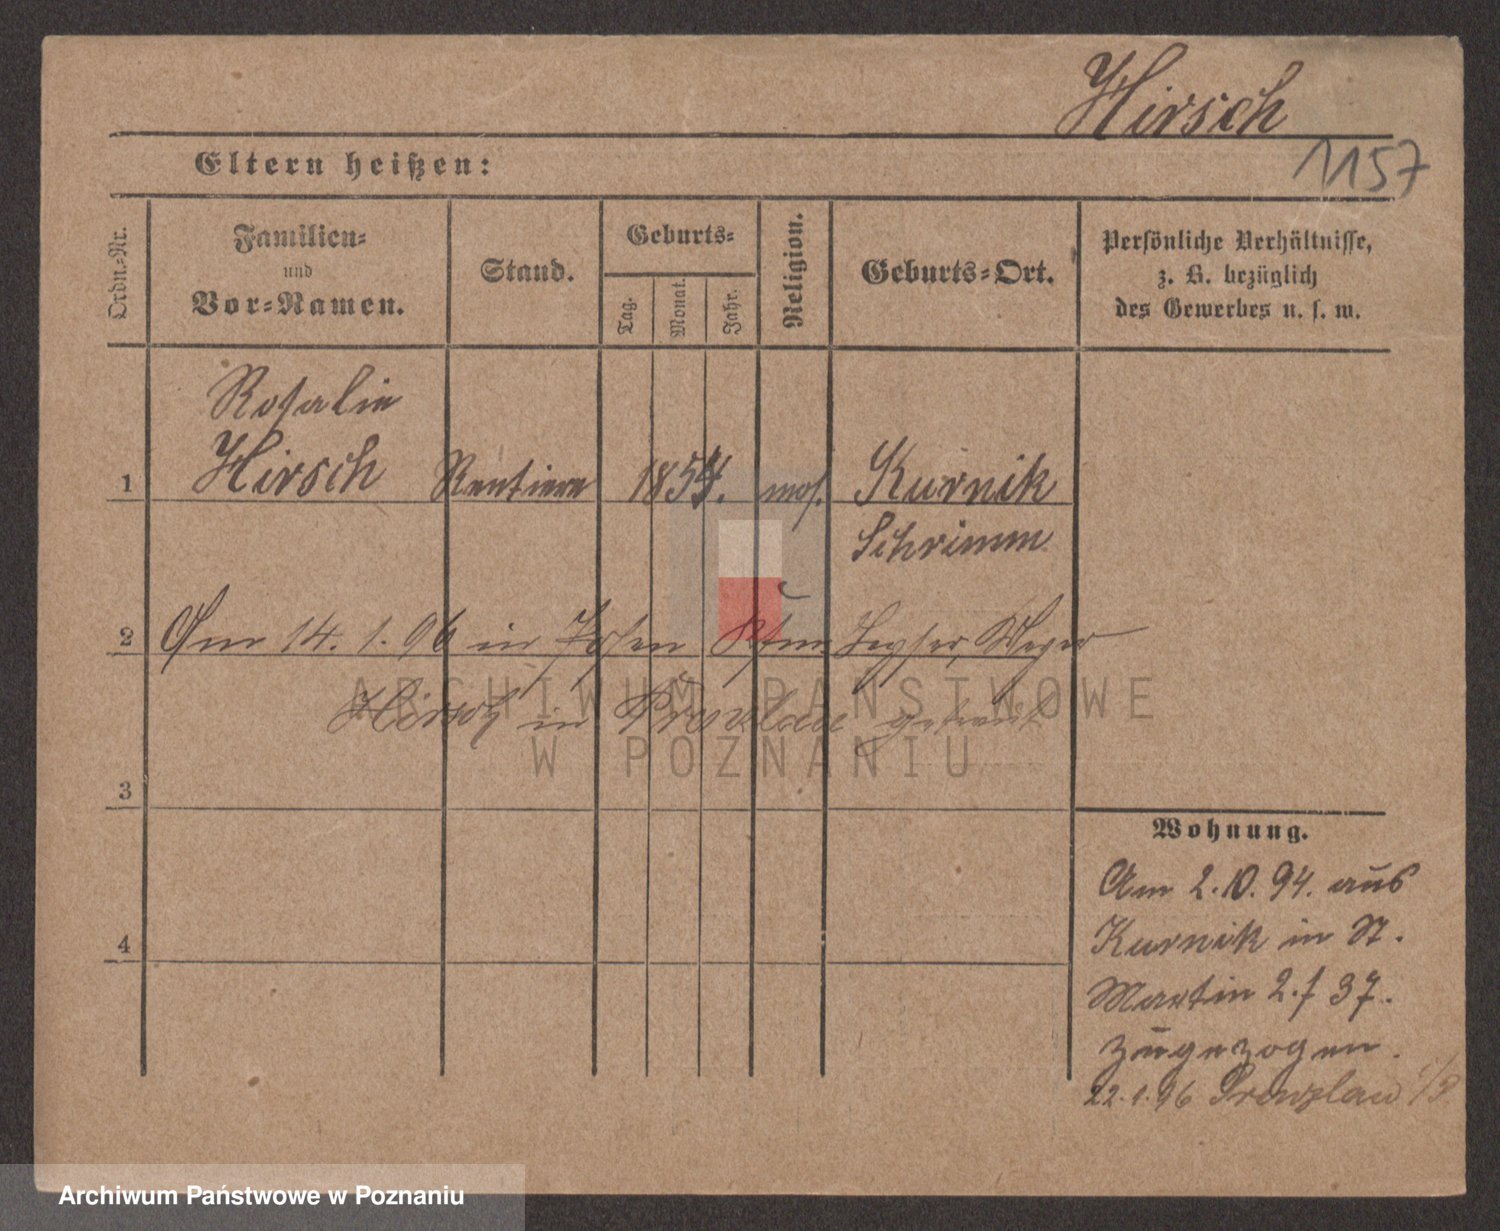 Hirsch
1157
Eltern heißen:
Ordn.-Nr.
Familien-
und
Vor-Namen.
Stand.
Geburts-
Tag.
Monat.
Jahr.
Religion.
Geburts-Ort.
Persönliche Verhältnisse,
z. B. bezüglich
des Gewerbes u. s. w.
Rosalie
1 Hirsch Rentiere 1854. mos. Kurnik
Schrimm
2 Am 14. 1. 96 in Posen Kfm.
Hirsch in Prenzlau getraut
3
4
Wohnung.
Am 2.10.94. aus
Kurnik in St.
Martin 2.f 37.
zugezogen.
22.1.96 Prenzlau
ARCHIWUM PAŃSTWOWE
W POZNANIU
Archiwum Państwowe w Poznaniu